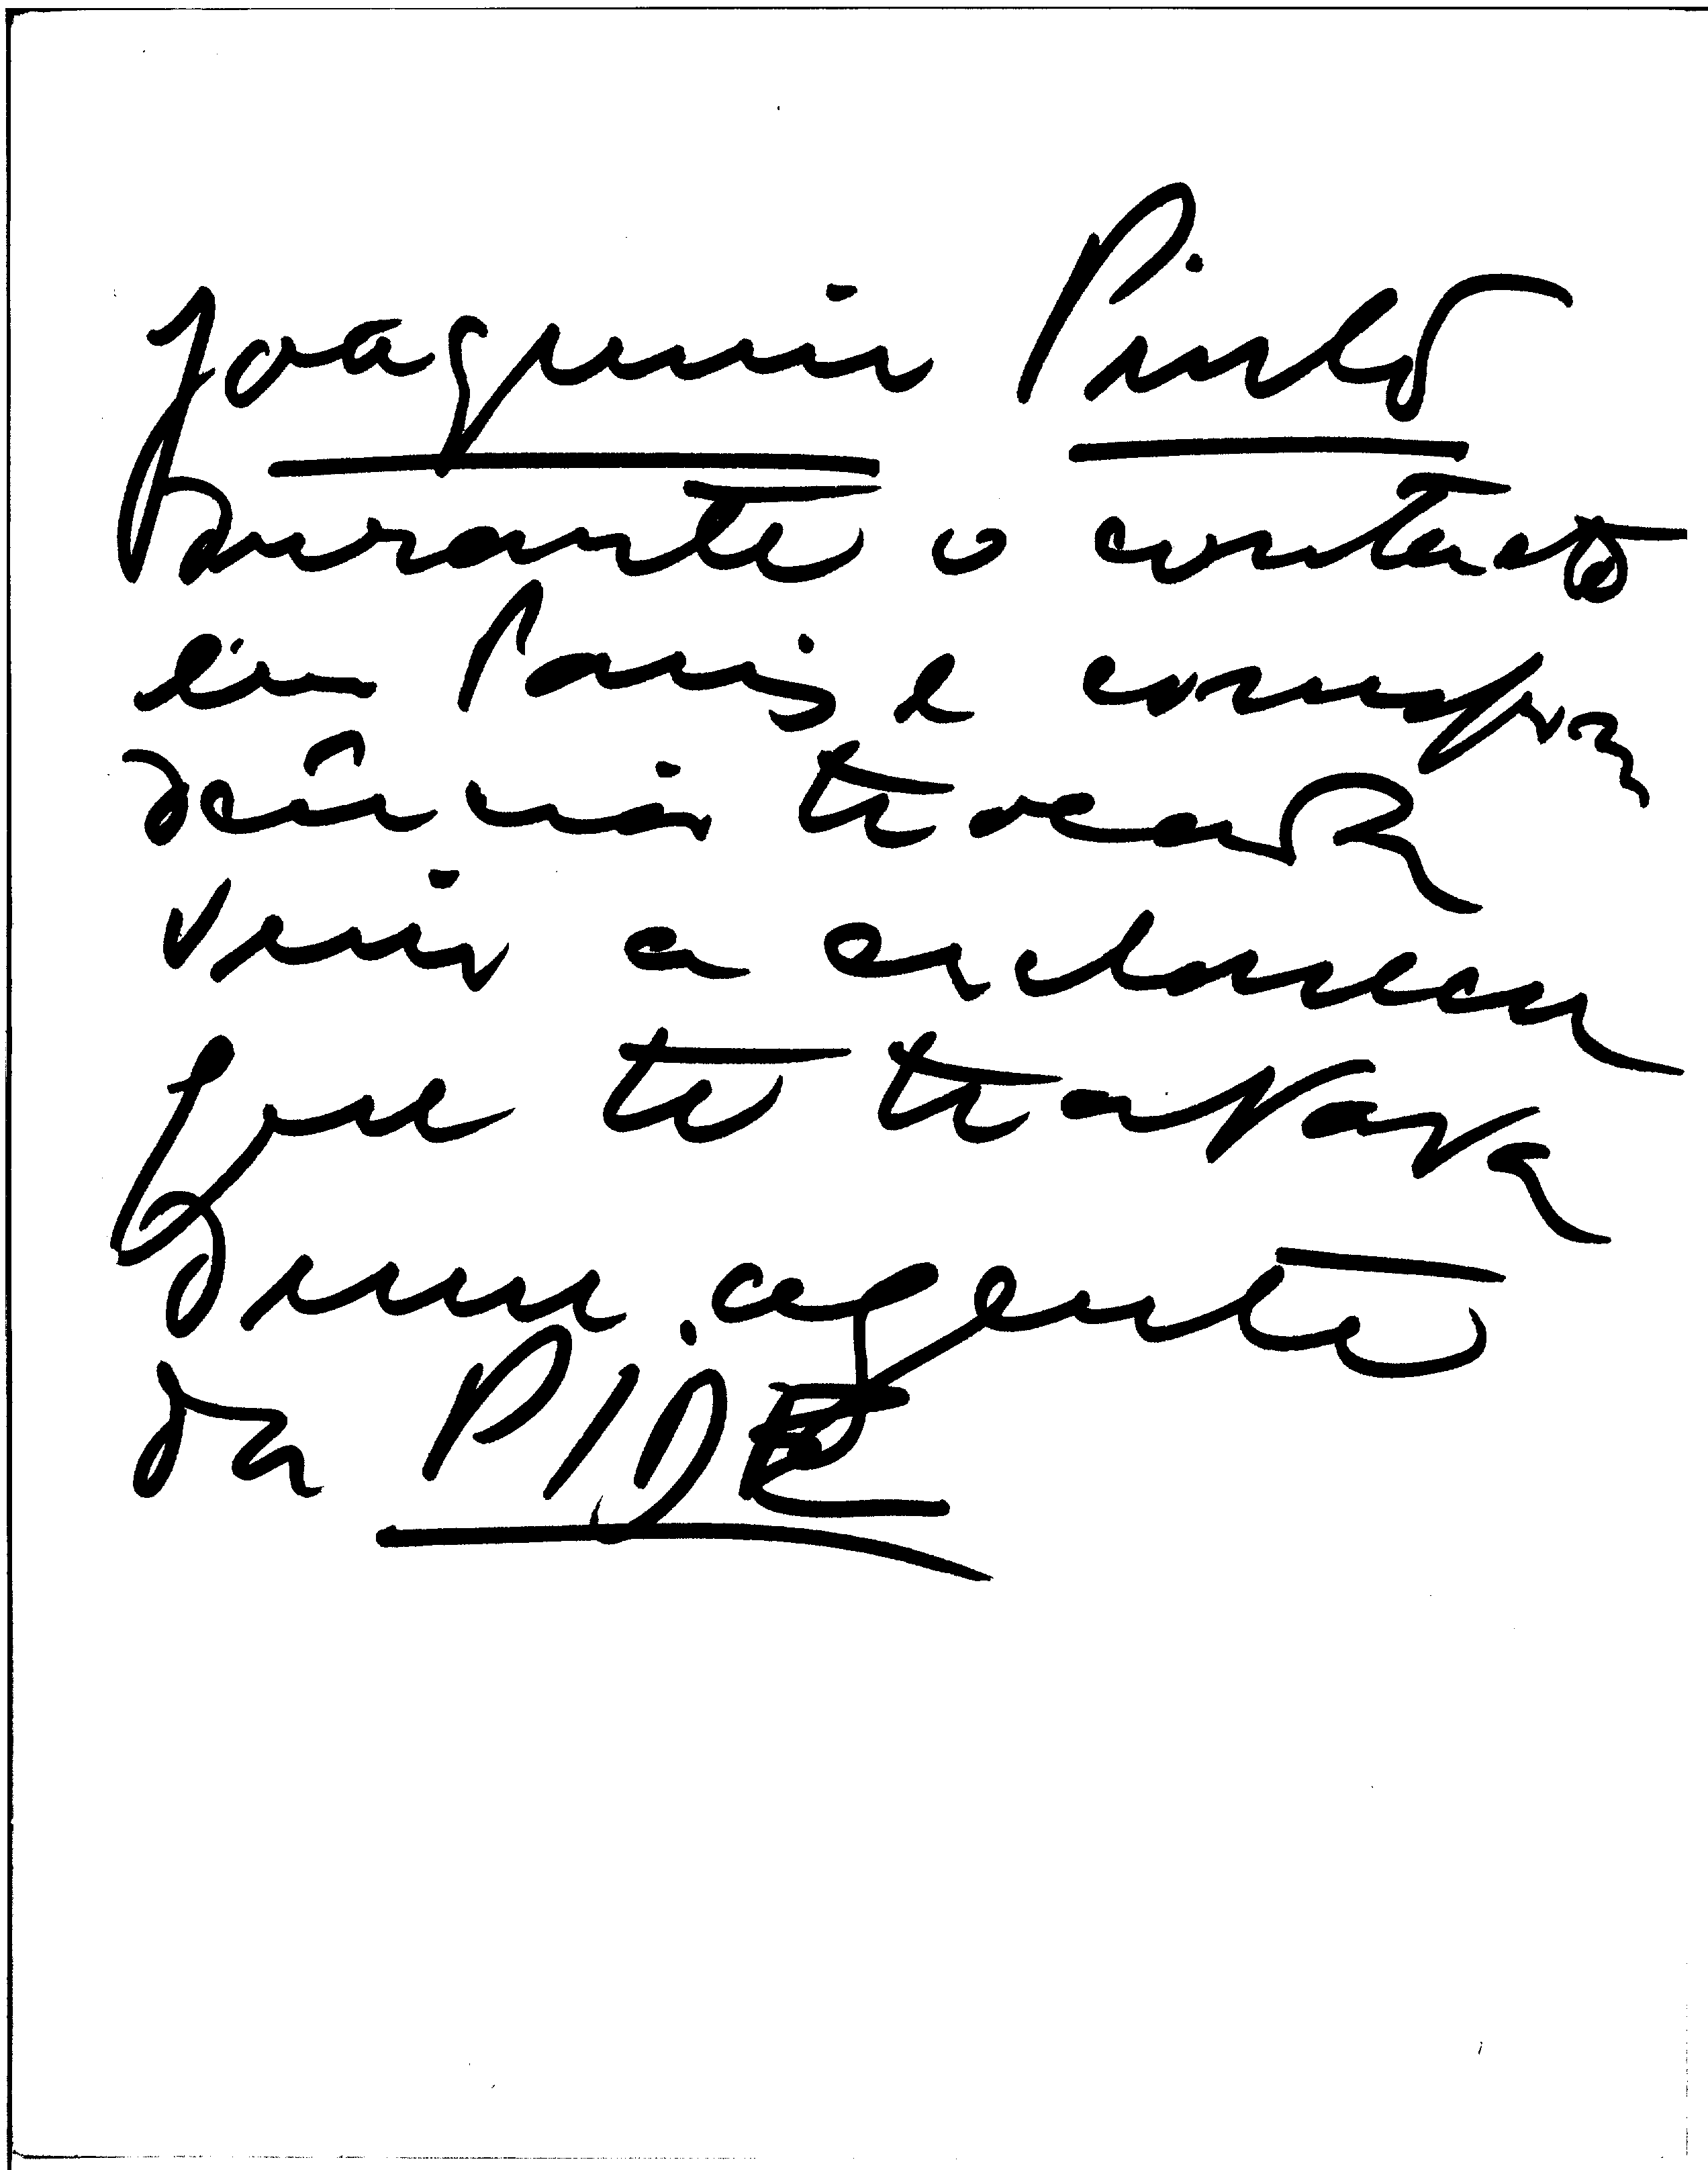 Joaquim Pinto
Durante o contacto
em Paris e correspon
dência trocada
vim a esclarecer
que se tratava
dum agente
da PIDE